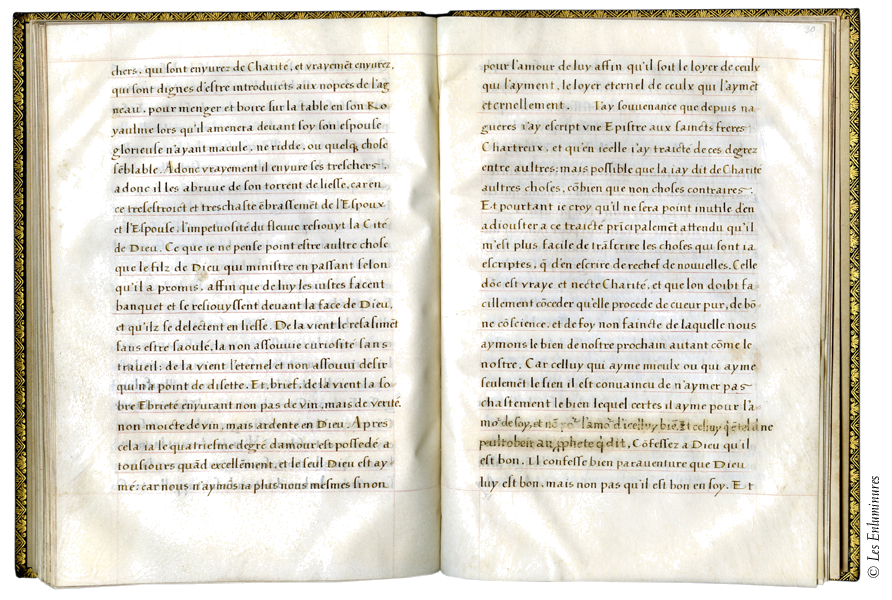 chers, qui sont enyurez de Charité, et vrayemẽt enyurez,
qui sont dignes d'estre introduicts aux nopces de l'ag
neau, pour menger et boire sur la table en son Ro
yaulme lors qu'il amenera deuant soy son espouse
glorieuse n'ayant macule, ne ridde, ou quelq; chose
sẽblable. Adonc vrayement il enyure ses treschers,
adonc il les abruue de son torrent de liesse, car en
ce tresestroict et treschaste ẽbrassemẽt de l'Espoux
et l'Espouse, l'impetuosité du fleuue resiouyt la Cité
de Dieu. Ce que ie ne pense point estre aultre chose
que le filz de Dieu qui ministre en passant selon
qu'il a promis, affin que de luy les iustes facent
banquet et se resiouyssent deuant la face de Dieu,
et qu'ilz se delectent en liesse. De la vient le resasimẽt
sans estre saoulé, la non assouuie curiosité sans
traueil: de la vient l'eternel et non assouui desir
qui n'a point de disette. Et, brief, de la vient la so
bre Ebrieté enyurant non pas de vin, mais de verité,
non moicte de vin, mais ardente en Dieu. Apres
cela ia le quatriesme degré damour est possedé a
tousiours quãd excellẽmẽt, et le seul Dieu est ay
mé: car nous n'aymõs ia plus nous mesmes sinon
30
pour l'amour de luy affin qu'il soit le loyer de ceulx
qui l'ayment, le loyer eternel de ceulx qui l'aymẽt
eternellement. I'ay souuenance que depuis na
gueres i'ay escript vne Epistre aux saincts freres
Chartreux, et qu'en icelle i'ay traicté de ces degrez
entre aultres: mais possible que la iay dit de Charité
aultres choses, cõbien que non choses contraires:
Et pourtant ie croy qu'il ne sera point inutile d'en
adiouster a ce traicté pricipalemẽt attendu qu'il
m'est plus facile de trãscrire les choses qui sont ia
escriptes, q̃ d'en escrire de rechef de nouuelles. Celle
dõc est vraye et necte Charité, et que lon doibt fa
cillement cõceder qu'elle procede de cueur pur, de bõ
ne cõscience, et de foy non faincte de laquelle nous
aymons le bien de nostre prochain autant cõme le
nostre. Car celluy qui ayme mieulx ou qui ayme
seulemẽt le sien il est conuaincu de n'aymer pas
chastement le bien lequel certes il ayme pour l'a
mor de soy, et nõ l'amor d'icelluy biẽ. Et celluy ne
peult obeir au q̃ dit, Cõfessez a Dieu qu'il
est bon. Il confesse bien parauenture que Dieu
luy est bon, mais non pas qu'il est bon en soy. Et
© Les Enluminures